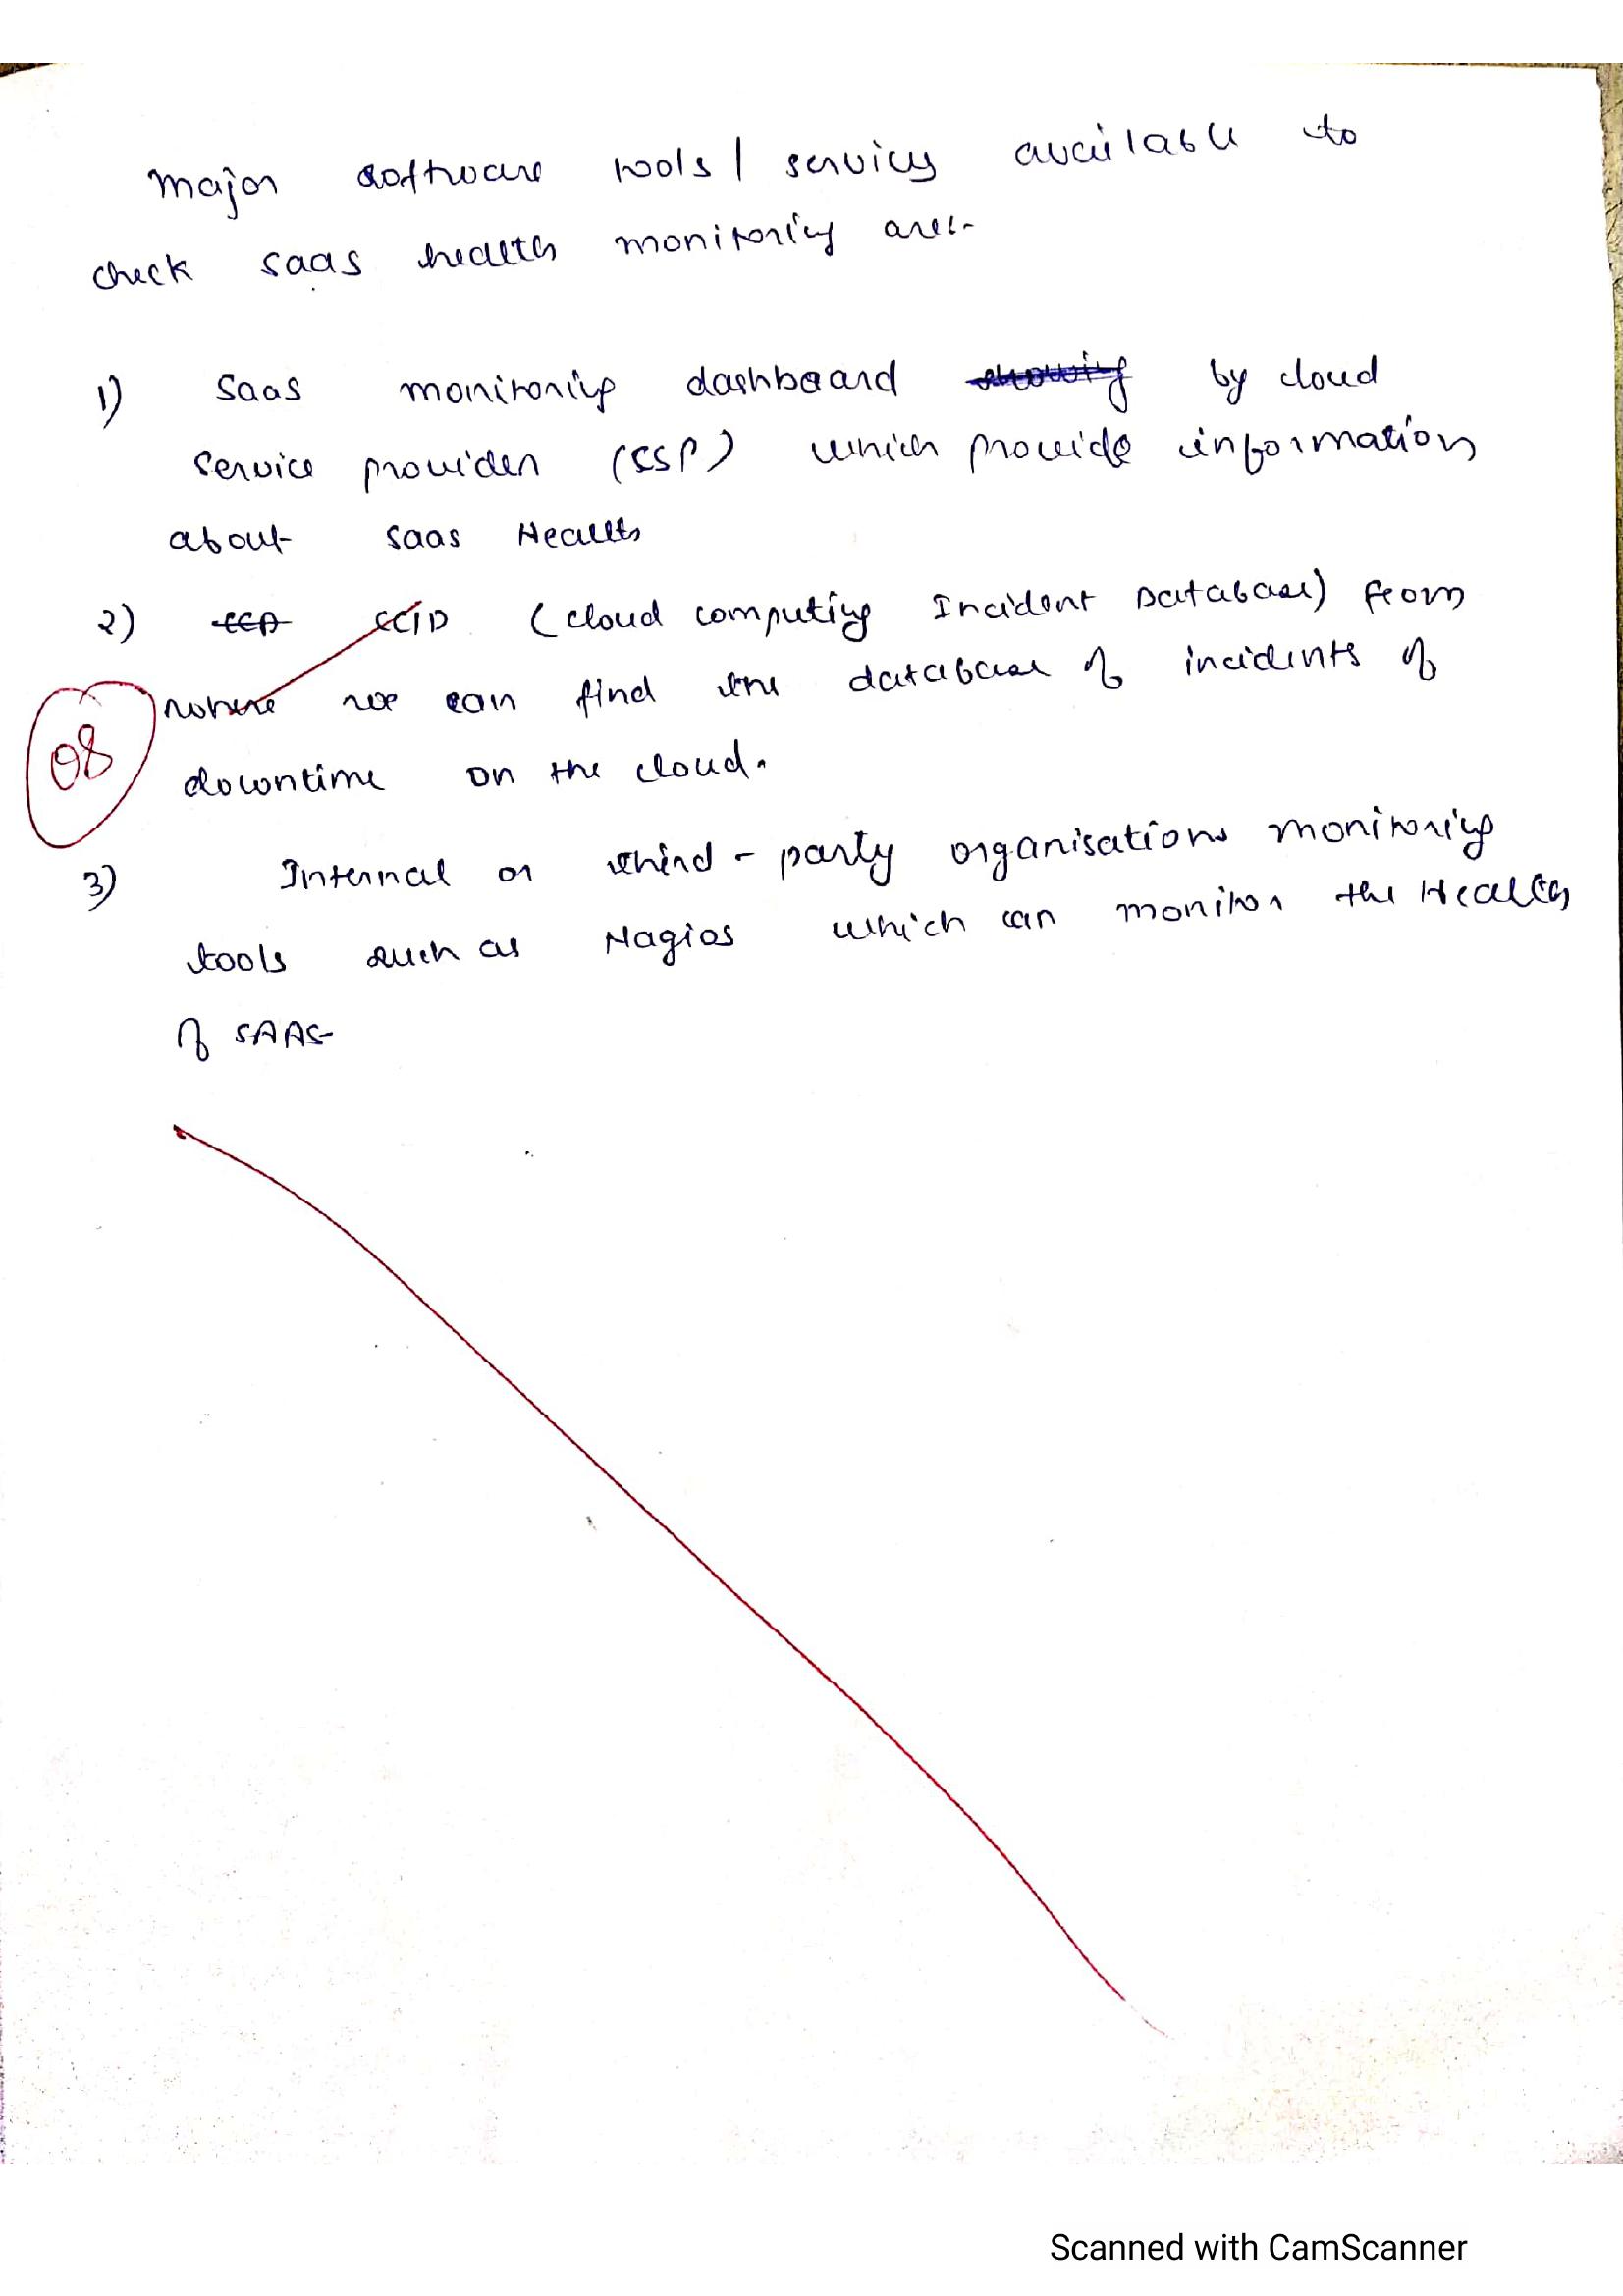 Major software tools / services available to
check saas health monitoring are:-
1) Saas monitoring dashboard by cloud
service provider (CSP) which provide information
about saas Health
2) CCID (cloud computing Incident Database) from
where we can find the database of incidents of
08
downtime on the cloud.
3) Internal or third-party organisations monitoring
tools such as Nagios which can monitor the Health
of SAAS
Scanned with CamScanner